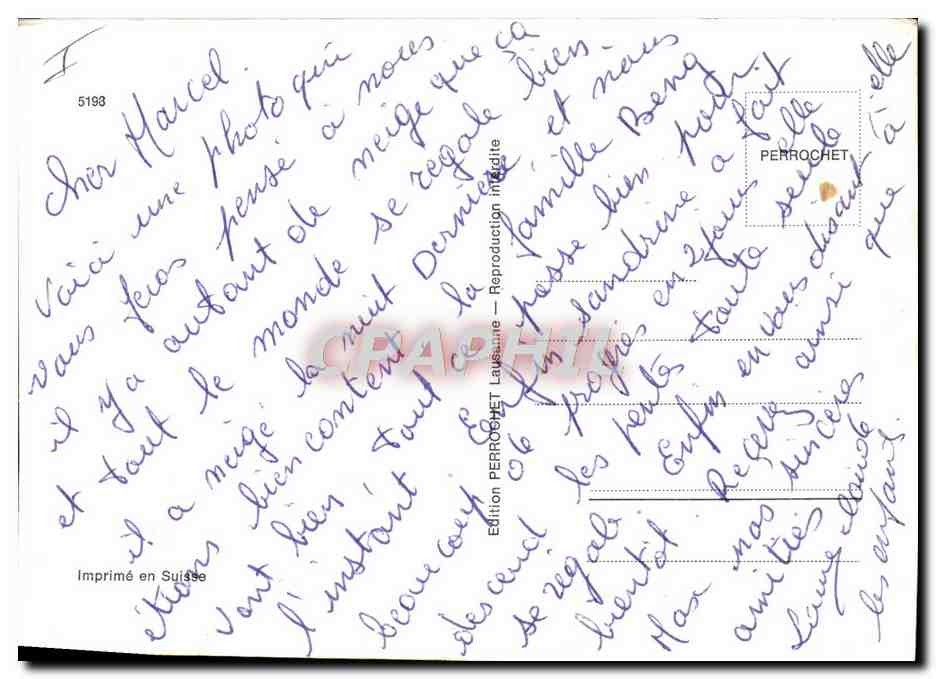 I
5193
Cher Marcel.
Voici une photo qui
vous feras pensé à nous
il y a autant de neige que ça
et tout le monde se regale bien.
il a neigé la nuit Dernière et nous
étions bien content. la famille Beng
vont bien. tout ce passe bien pour
l'instant. Enfin sandrine a fait
beaucoup de progrès en 2 jours elle
descend les pentes toute seule
se regale. Enfin en vous disant à
bientôt. Reçevez ainsi que à elle
Max nos sincères
amitiés
claude
les enfants.
PERROCHET
Edition PERROCHET Lausanne — Reproduction interdite
Imprimé en Suisse
CRAPHIL